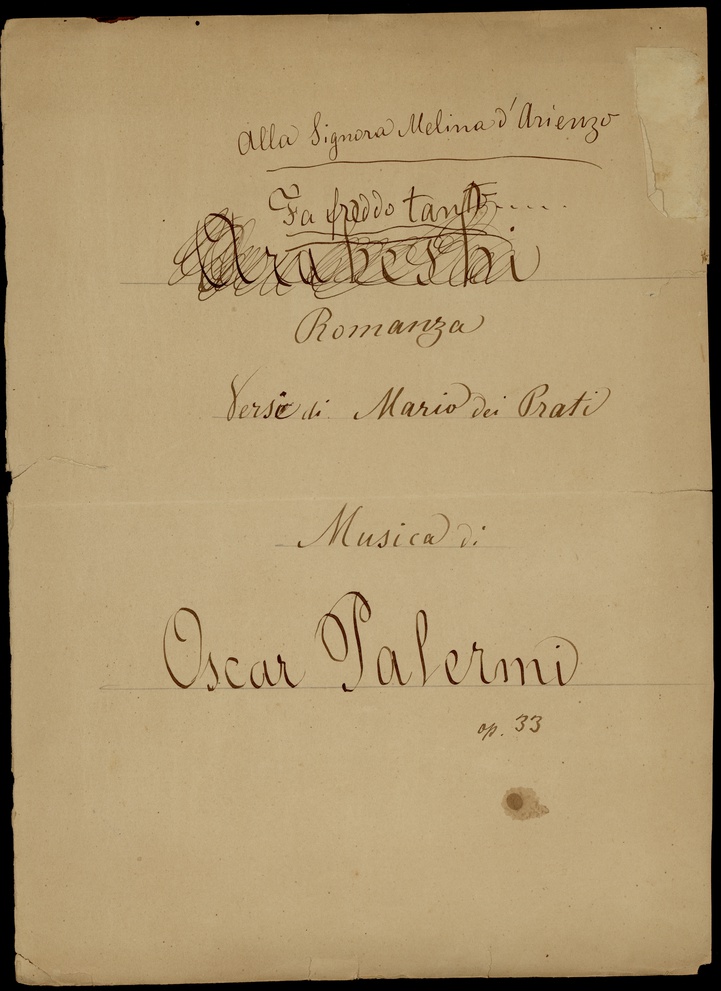 Alla Signora Melina d'Arienzo
Fa freddo tanto.....
Arabeshi
Romanza
Versi di Mario dei Prati
Musica di
Oscar Palermi
op. 33